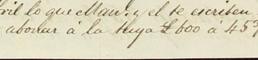 ril lo que Man. y el te escriben
abonar á la tuya £600 á 45